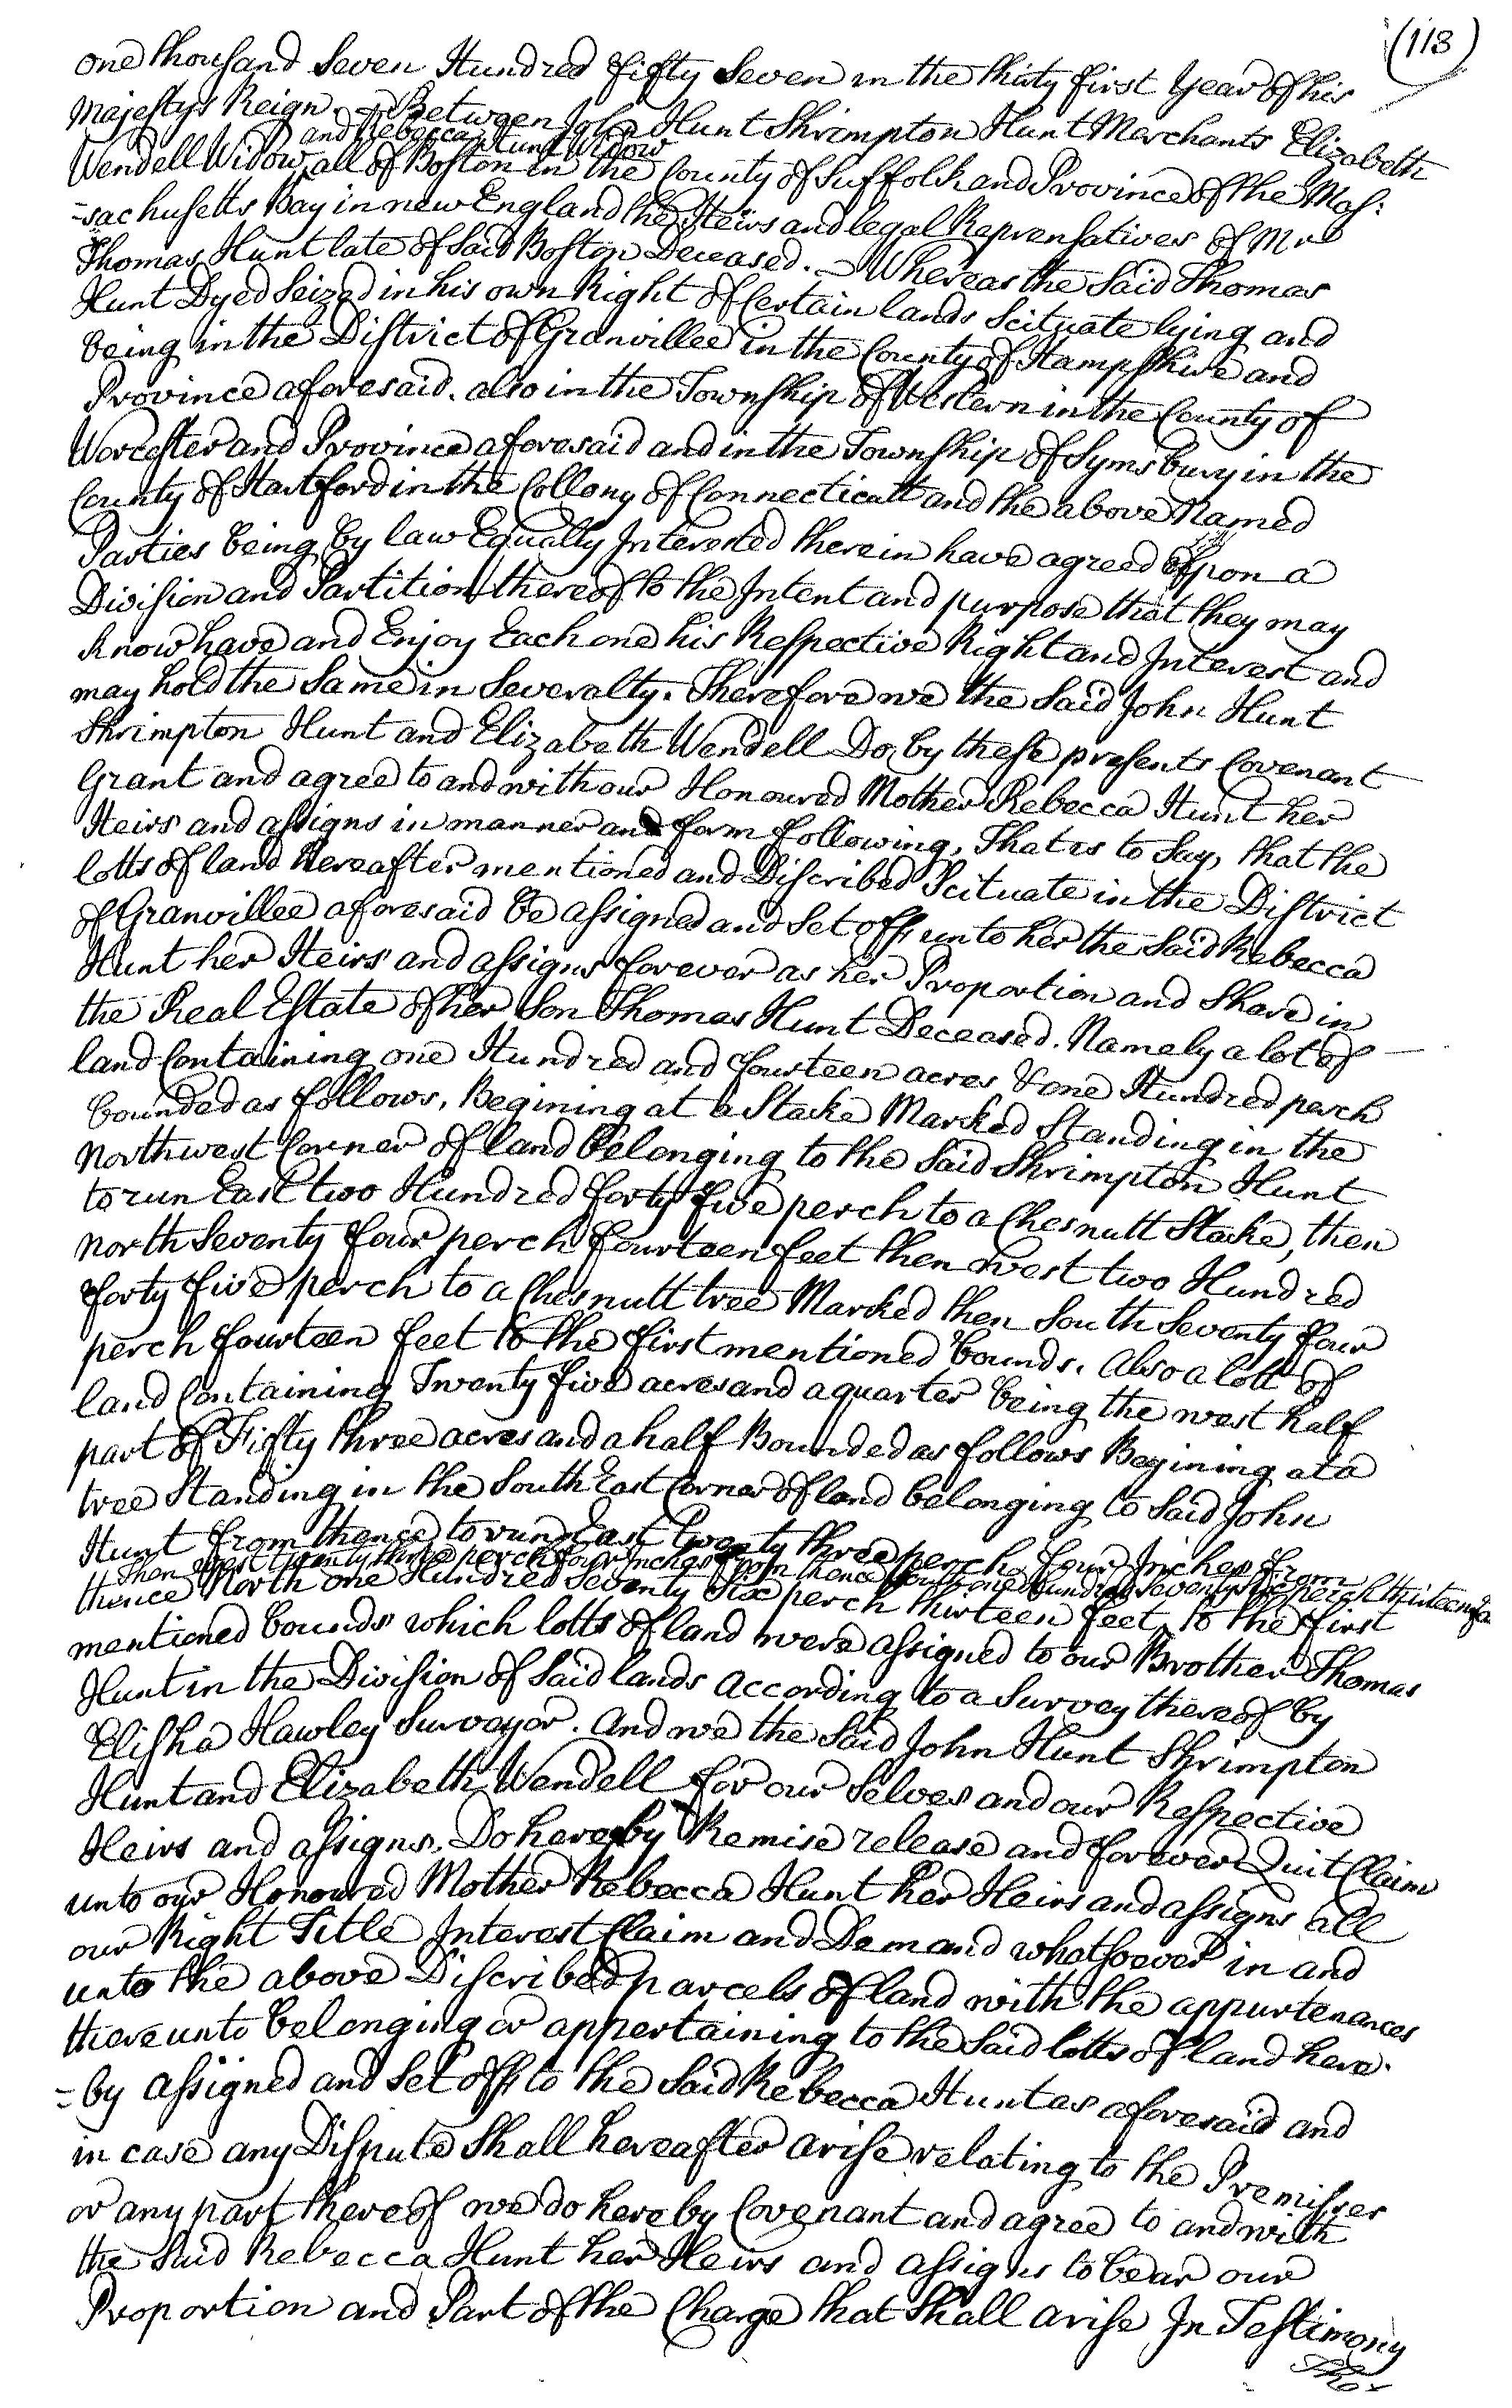 (113)
one thousand Seven Hundred fifty Seven in the thirty first Year of his
Majestys Reign. Between John Hunt Shrimpton Hunt Merchants Elizabeth
and Rebecca Hunt Widow
Wendell Widow, all of Boston in the County of Suffolk and Province of the Mas:
=sachusetts Bay in new England the Heirs and legal Represensatives of Mr
Thomas Hunt late of Said Boston Deceased. Whereas the Said Thomas
Hunt Dyed Seized in his own Right of Certain lands Scituate lying and
being in the District of Granvillee in the County of Hampshire and
Province aforesaid. also in the Township of Western in the County of
Worcester and Province aforesaid and in the Township of Symsbury in the
County of Hartford in the Collony of Connecticutt and the above Named
Parties being by law Equally Interested therein have agreed upon a
Division and Partition thereof to the Intent and purpose that they may
know have and Enjoy Each one his Respective Right and Interest and
may hold the Same in Severalty. Therefore we the Said John Hunt
Shrimpton Hunt and Elizabeth Wendell Do, by these presents Covenant
Grant and agree to and with our Honoured Mother Rebecca Hunt her
Heirs and assigns in manner and form following, That is to Say, that the
lotts of land hereafter mentioned and Discribed Scituate in the District
of Granvillee aforesaid be assigned and Set off, unto her the Said Rebecca
Hunt her Heirs and assigns forever as her Proportion and Share in
the Real Estate of her Son Thomas Hunt Deceased. Namely a lot of
land Containing one Hundred and fourteen acres & one Hundred perch
bounded as follows, Begining at a Stake Marked Standing in the
northwest Corner of land belonging to the Said Shrimpton Hunt
to run East two Hundred forty five perch to a Chesnutt Stake, then
north Seventy four perch fourteen feet then west two Hundred
forty five perch to a Chesnutt tree Marked then South Seventy four
perch fourteen feet to the first mentioned bounds. Also a lott of
land Containing Twenty five acres and a quarter being the west half
part of Fifty three acres and a half Bounded as follows Begining at a
tree Standing in the South East Corner of land belonging to Said John
Hunt from thence to run East Twenty three perch four Inches from
then west twenty three perch four Inches from thence South one hundred Seventy Six perch thirteen feet
thence North one Hundred Seventy Six perch thirteen feet, to the first
mentioned bounds which lotts of land were assigned to our Brother Thomas
Hunt in the Division of Said lands according to a Survey thereof by
Elisha Hawley Surveyor. And we the Said John Hunt Shrimpton
Hunt and Elizabeth Wendell for our Selves and our Respective
Heirs and assigns. Do hereby Remise release and forever Quit Claim
unto our Honoured Mother Rebecca Hunt her Heirs and assigns all
our Right Title Interest Claim and Demand whatsoever in and
unto the above Discribed parcels of land with the appurtenances
thereunto belonging or appertaining to the Said lotts of land here-
=by assigned and Set off, to the Said Rebecca Hunt as aforesaid and
in case any Dispute Shall hereafter arise relating to the Premisses
or any part thereof we do hereby Covenant and agree to and with
the Said Rebecca Hunt her Heirs and assigns to bear our
Proportion and Part of the Charge that Shall arise In Testimony